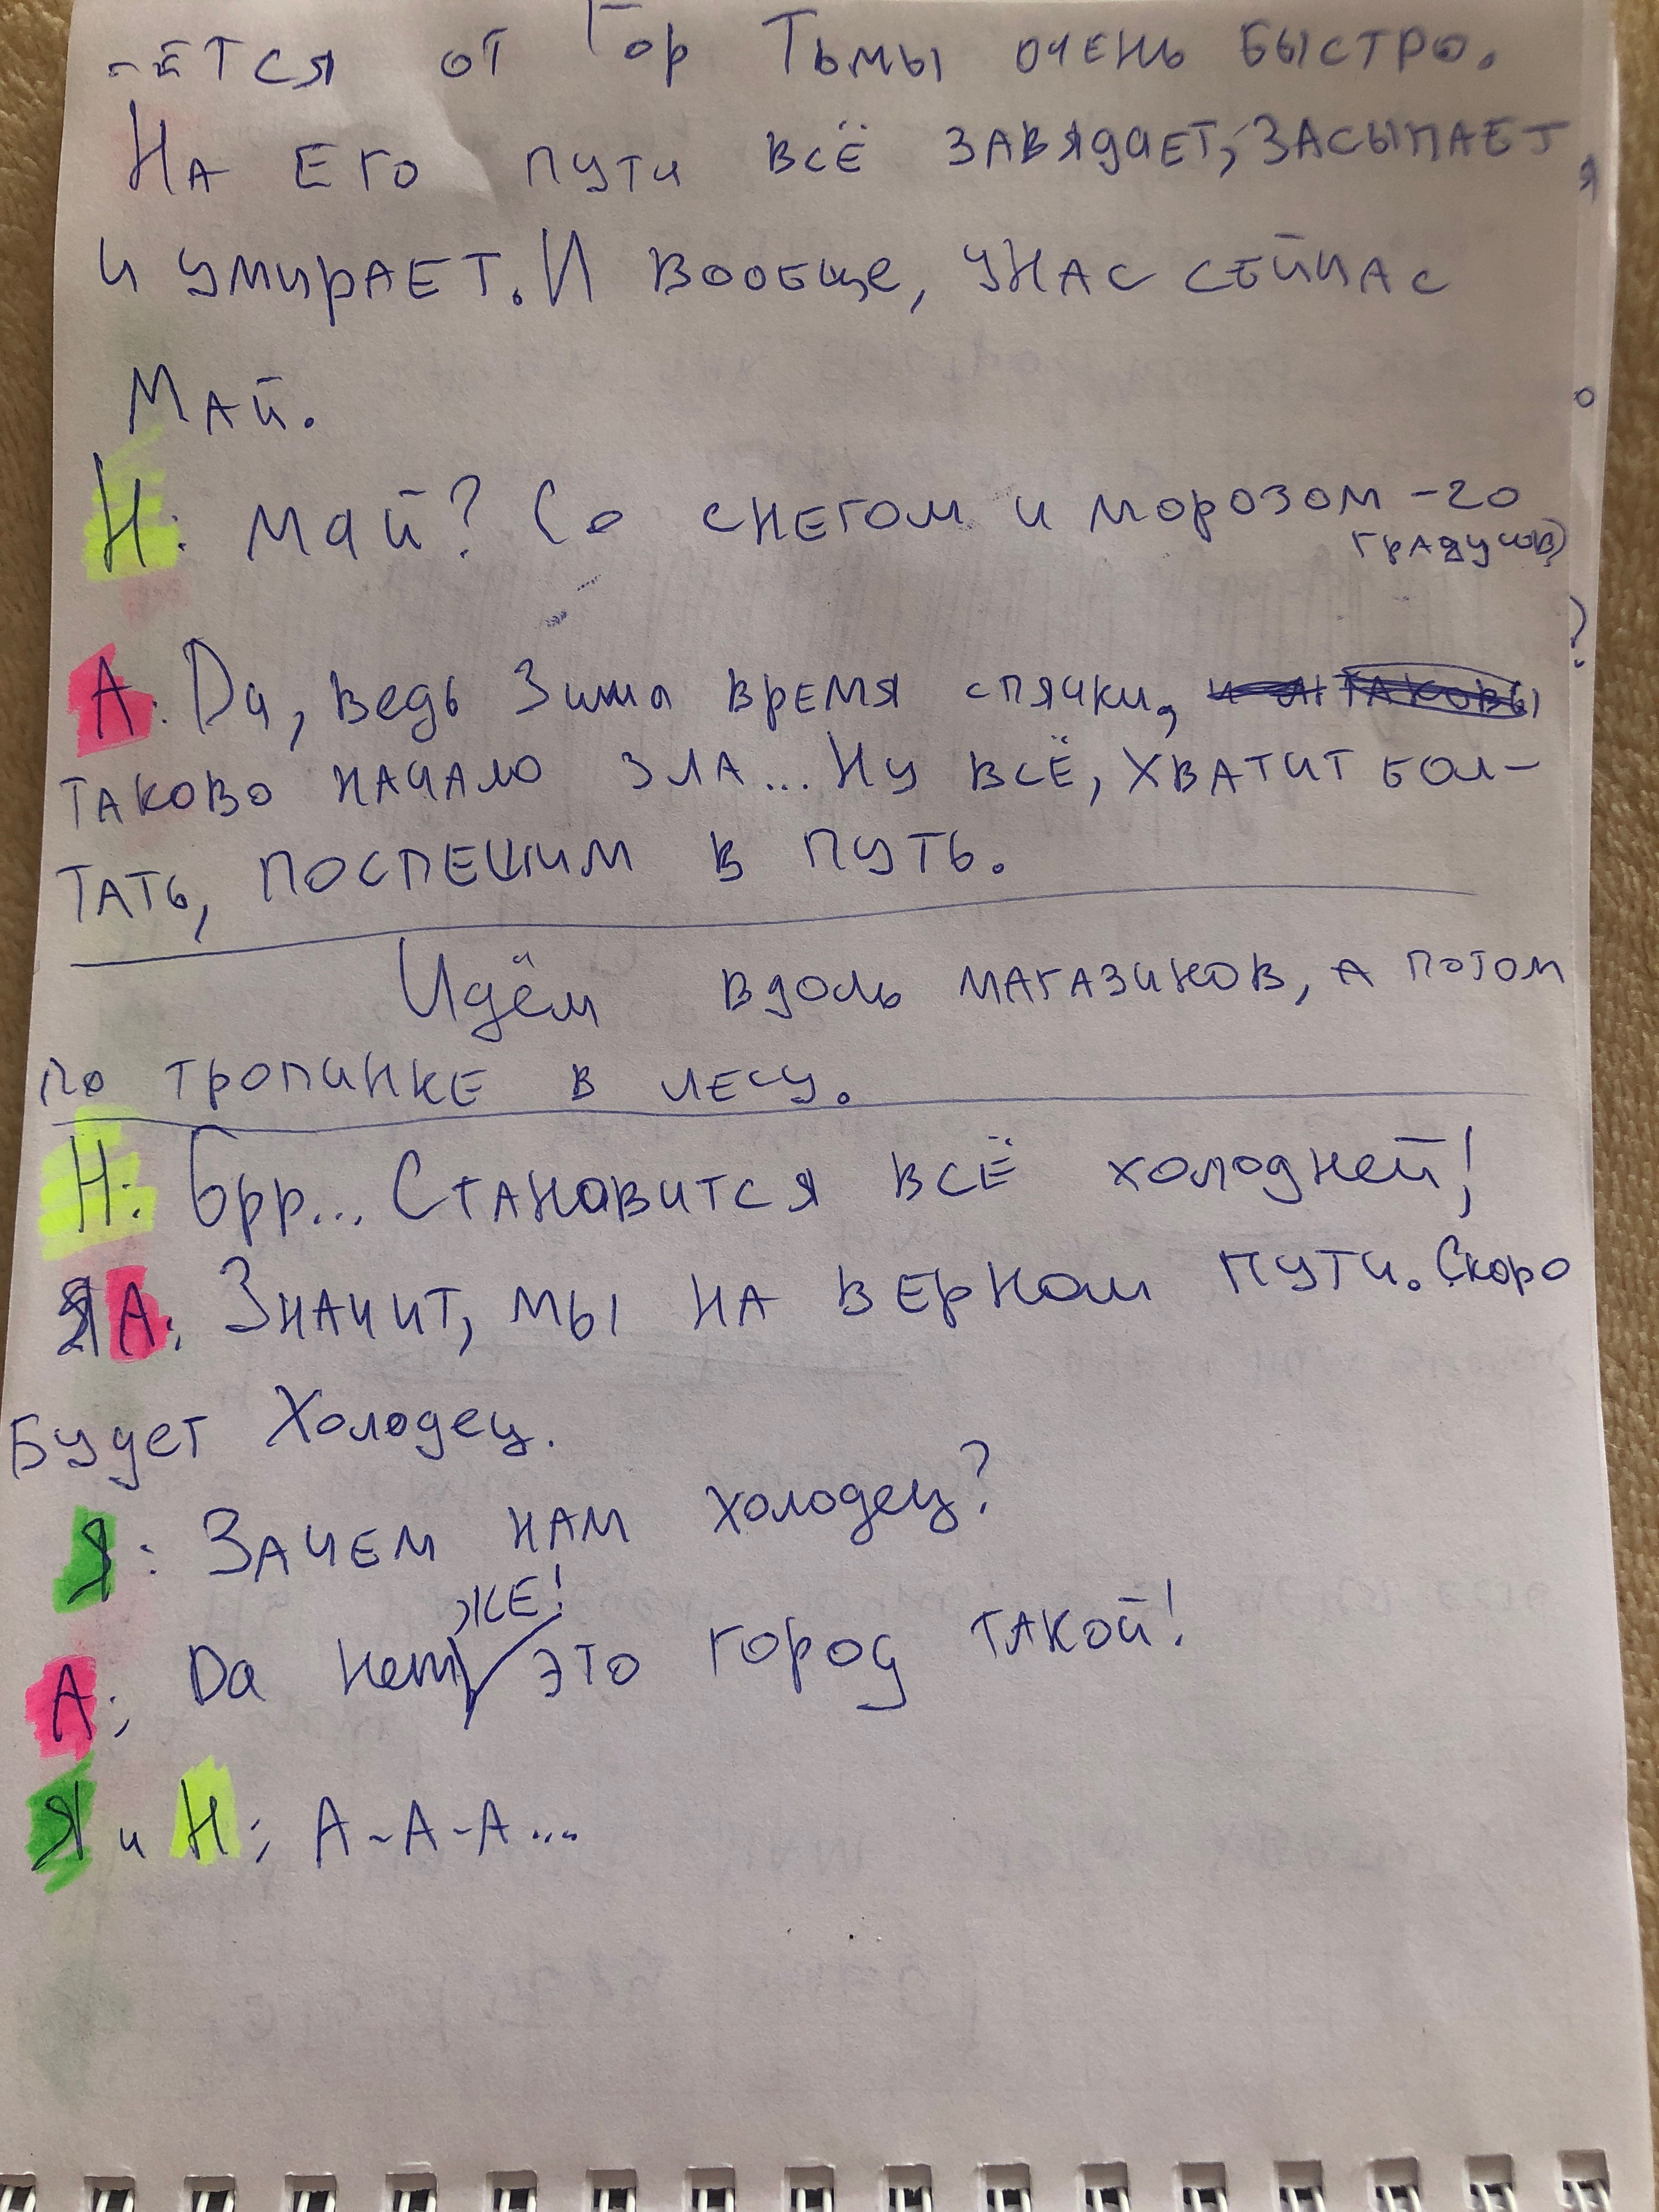 -ётся от Гор Тьмы очень быстро.
На его пути всё завядает, засыпает
и умирает. И вообще, у нас сейчас
Май.
Н: Май? Со снегом и морозом -20
градусов?
А: Да, ведь Зима время спячки,
таково начало зла... Ну всё, хватит бол-
тать, поспешим в путь.
Идём вдоль магазинов, а потом
по тропинке в лесу.
Н: Брр... Становится всё холодней!
А: Значит, мы на верном пути. Скоро
Будет Холодец.
Я: Зачем нам холодец?
А: Да нет же! это город такой!
Я и Н: А-А-А...